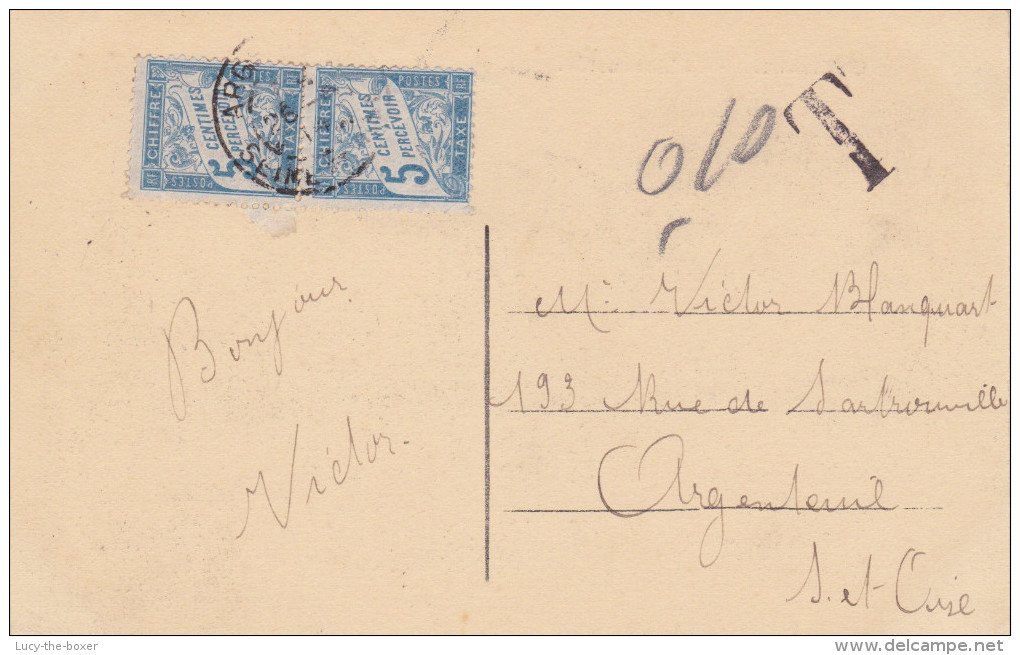 CHIFFRE
TAXE
5
CENTIMES
PERCEVOIR
POSTES
RF
CHIFFRE
TAXE
5
CENTIMES
PERCEVOIR
POSTES
RF
ARG
26
SEINE
0/10
T
Bonjour
Victor.
Mr Victor Blanquart
193 Rue de Sartrouville
Argenteuil
S. et Oise
Lucy-the-boxer
www.delcampe.net